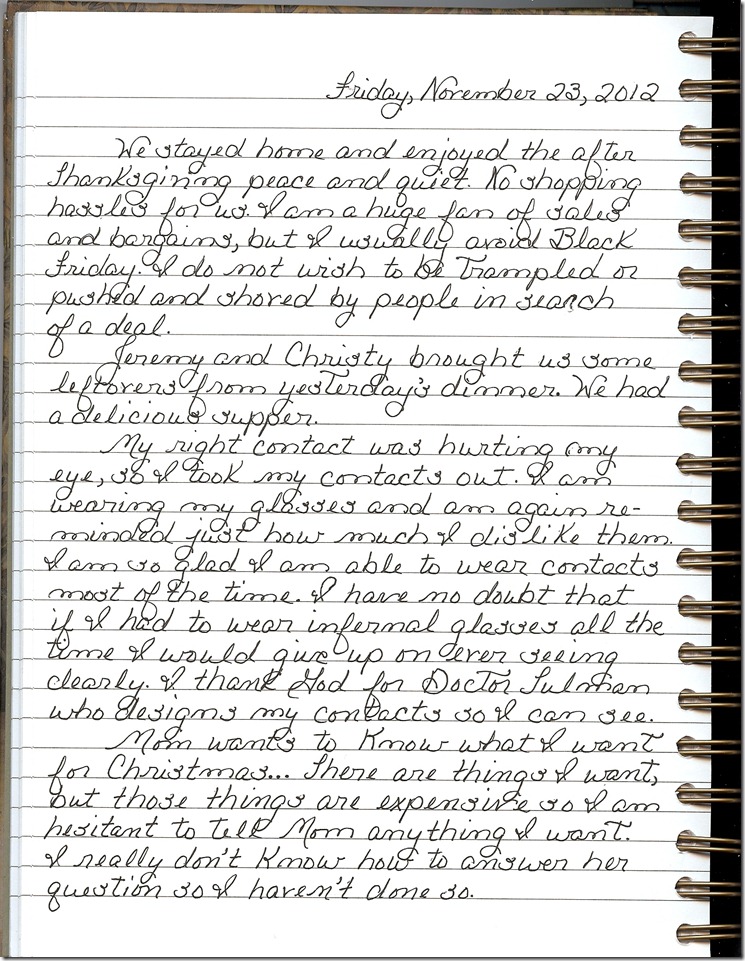 Friday, November 23, 2012
We stayed home and enjoyed the after
Thanksgiving peace and quiet. No shopping
hassles for us. I am a huge fan of sales
and bargains, but I usually avoid Black
Friday. I do not wish to be Trampled or
pushed and shoved by people in search
of a deal.
Jeremy and Christy brought us some
leftovers from yesterday's dinner. We had
a delicious supper.
My right contact was hurting my
eye, so I took my contacts out. I am
wearing my glasses and am again re-
minded just how much I dislike them.
I am so glad I am able to wear contacts
most of the time. I have no doubt that
if I had to wear infernal glasses all the
time I would give up on ever seeing
clearly. I thank God for Doctor Sulman
who designs my contacts so I can see.
Mom wants to Know what I want
for Christmas... There are things I want,
but those things are expensive so I am
hesitant to tell Mom anything I want.
I really don't Know how to answer her
question so I haven't done so.